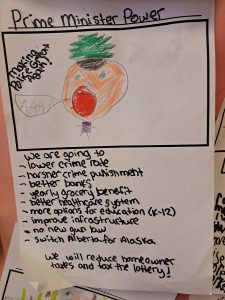 Prime Minister Power
Making
Great
Again!
AAAA
We are going to
- lower crime rate
- harsher crime punishment
- better banks
- yearly grocery benefit
- better healthcare system
- more options for education (K-12)
- improve infrastructure
- no new gun law
- switch Alberta for Alaska
We will reduce homeowner
taxes and tax the lottery!